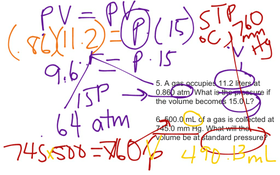 PV = PV
(.86)(11.2) = P (15)
9.6 = P.15
15P
64 atm
STP 760
0°C
mm
Hg
V
5. A gas occupies 11.2 liters at
0.860 atm. What is the pressure if
the volume becomes 15.0 L?
6. 500.0 mL of a gas is collected at
745.0 mm Hg. What will the
volume be at standard pressure?
745 x 500 = 760
490.13 mL